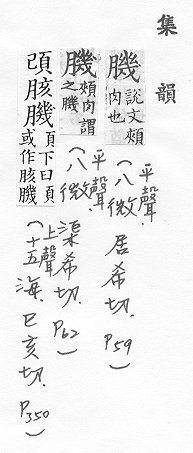 集韻
𦠄 說文頰肉也
(平聲.八微.居希切.P59)
𦠄 頰肉謂之𦠄
(平聲.八微.渠希切.P62)
胲𦠄 頁下曰頁或作胲𦠄
(上聲.十五海.己亥切.P350)